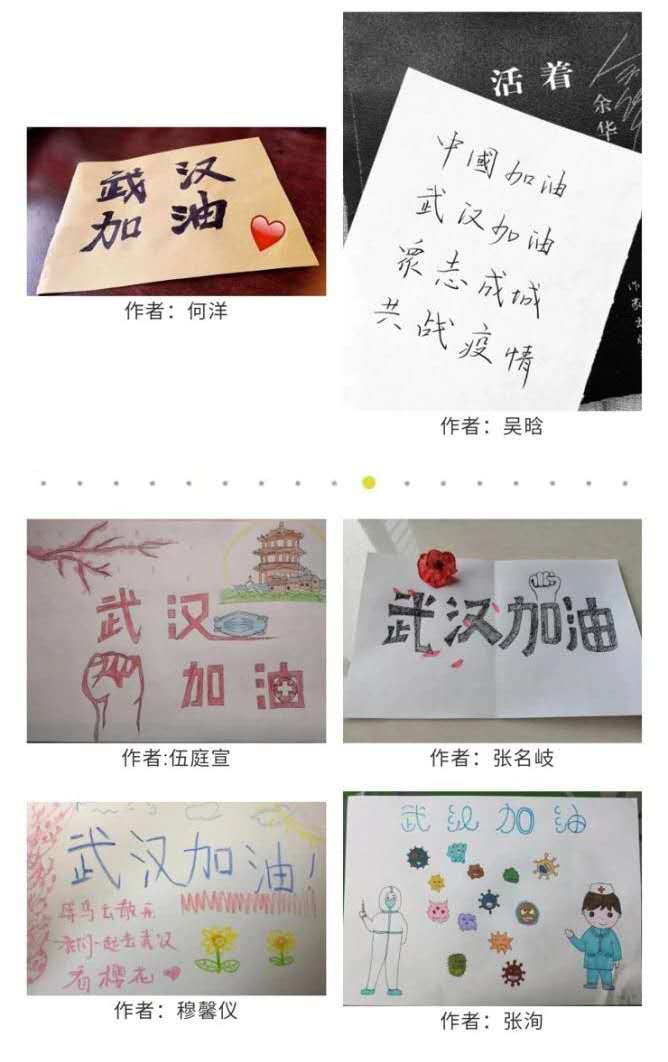 武汉
加油
作者：何洋
活着
余华
中國加油
武汉加油
眾志成城
共战疫情
作家出版
作者：吴晗
武汉
加油
作者:伍庭宣
武汉加油
作者：张名岐
武汉加油！
阴鸟去散元
我们一起去武汉
看樱花
作者：穆馨仪
武汉加油
作者：张洵